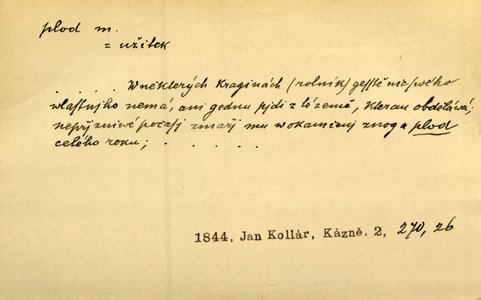 plod m.
= užitek
. . . . . . Wněkterých kraginách (rolník) gesstě nic swého
wlastnjho nemá, ani gednu pjdi z té země, kterau obdělává;
nepřjzniwé počasj zmařj mu w okamženj znog a plod
celého roku; . . . . . .
1844, Jan Kollár, Kázně. 2, 270, 26